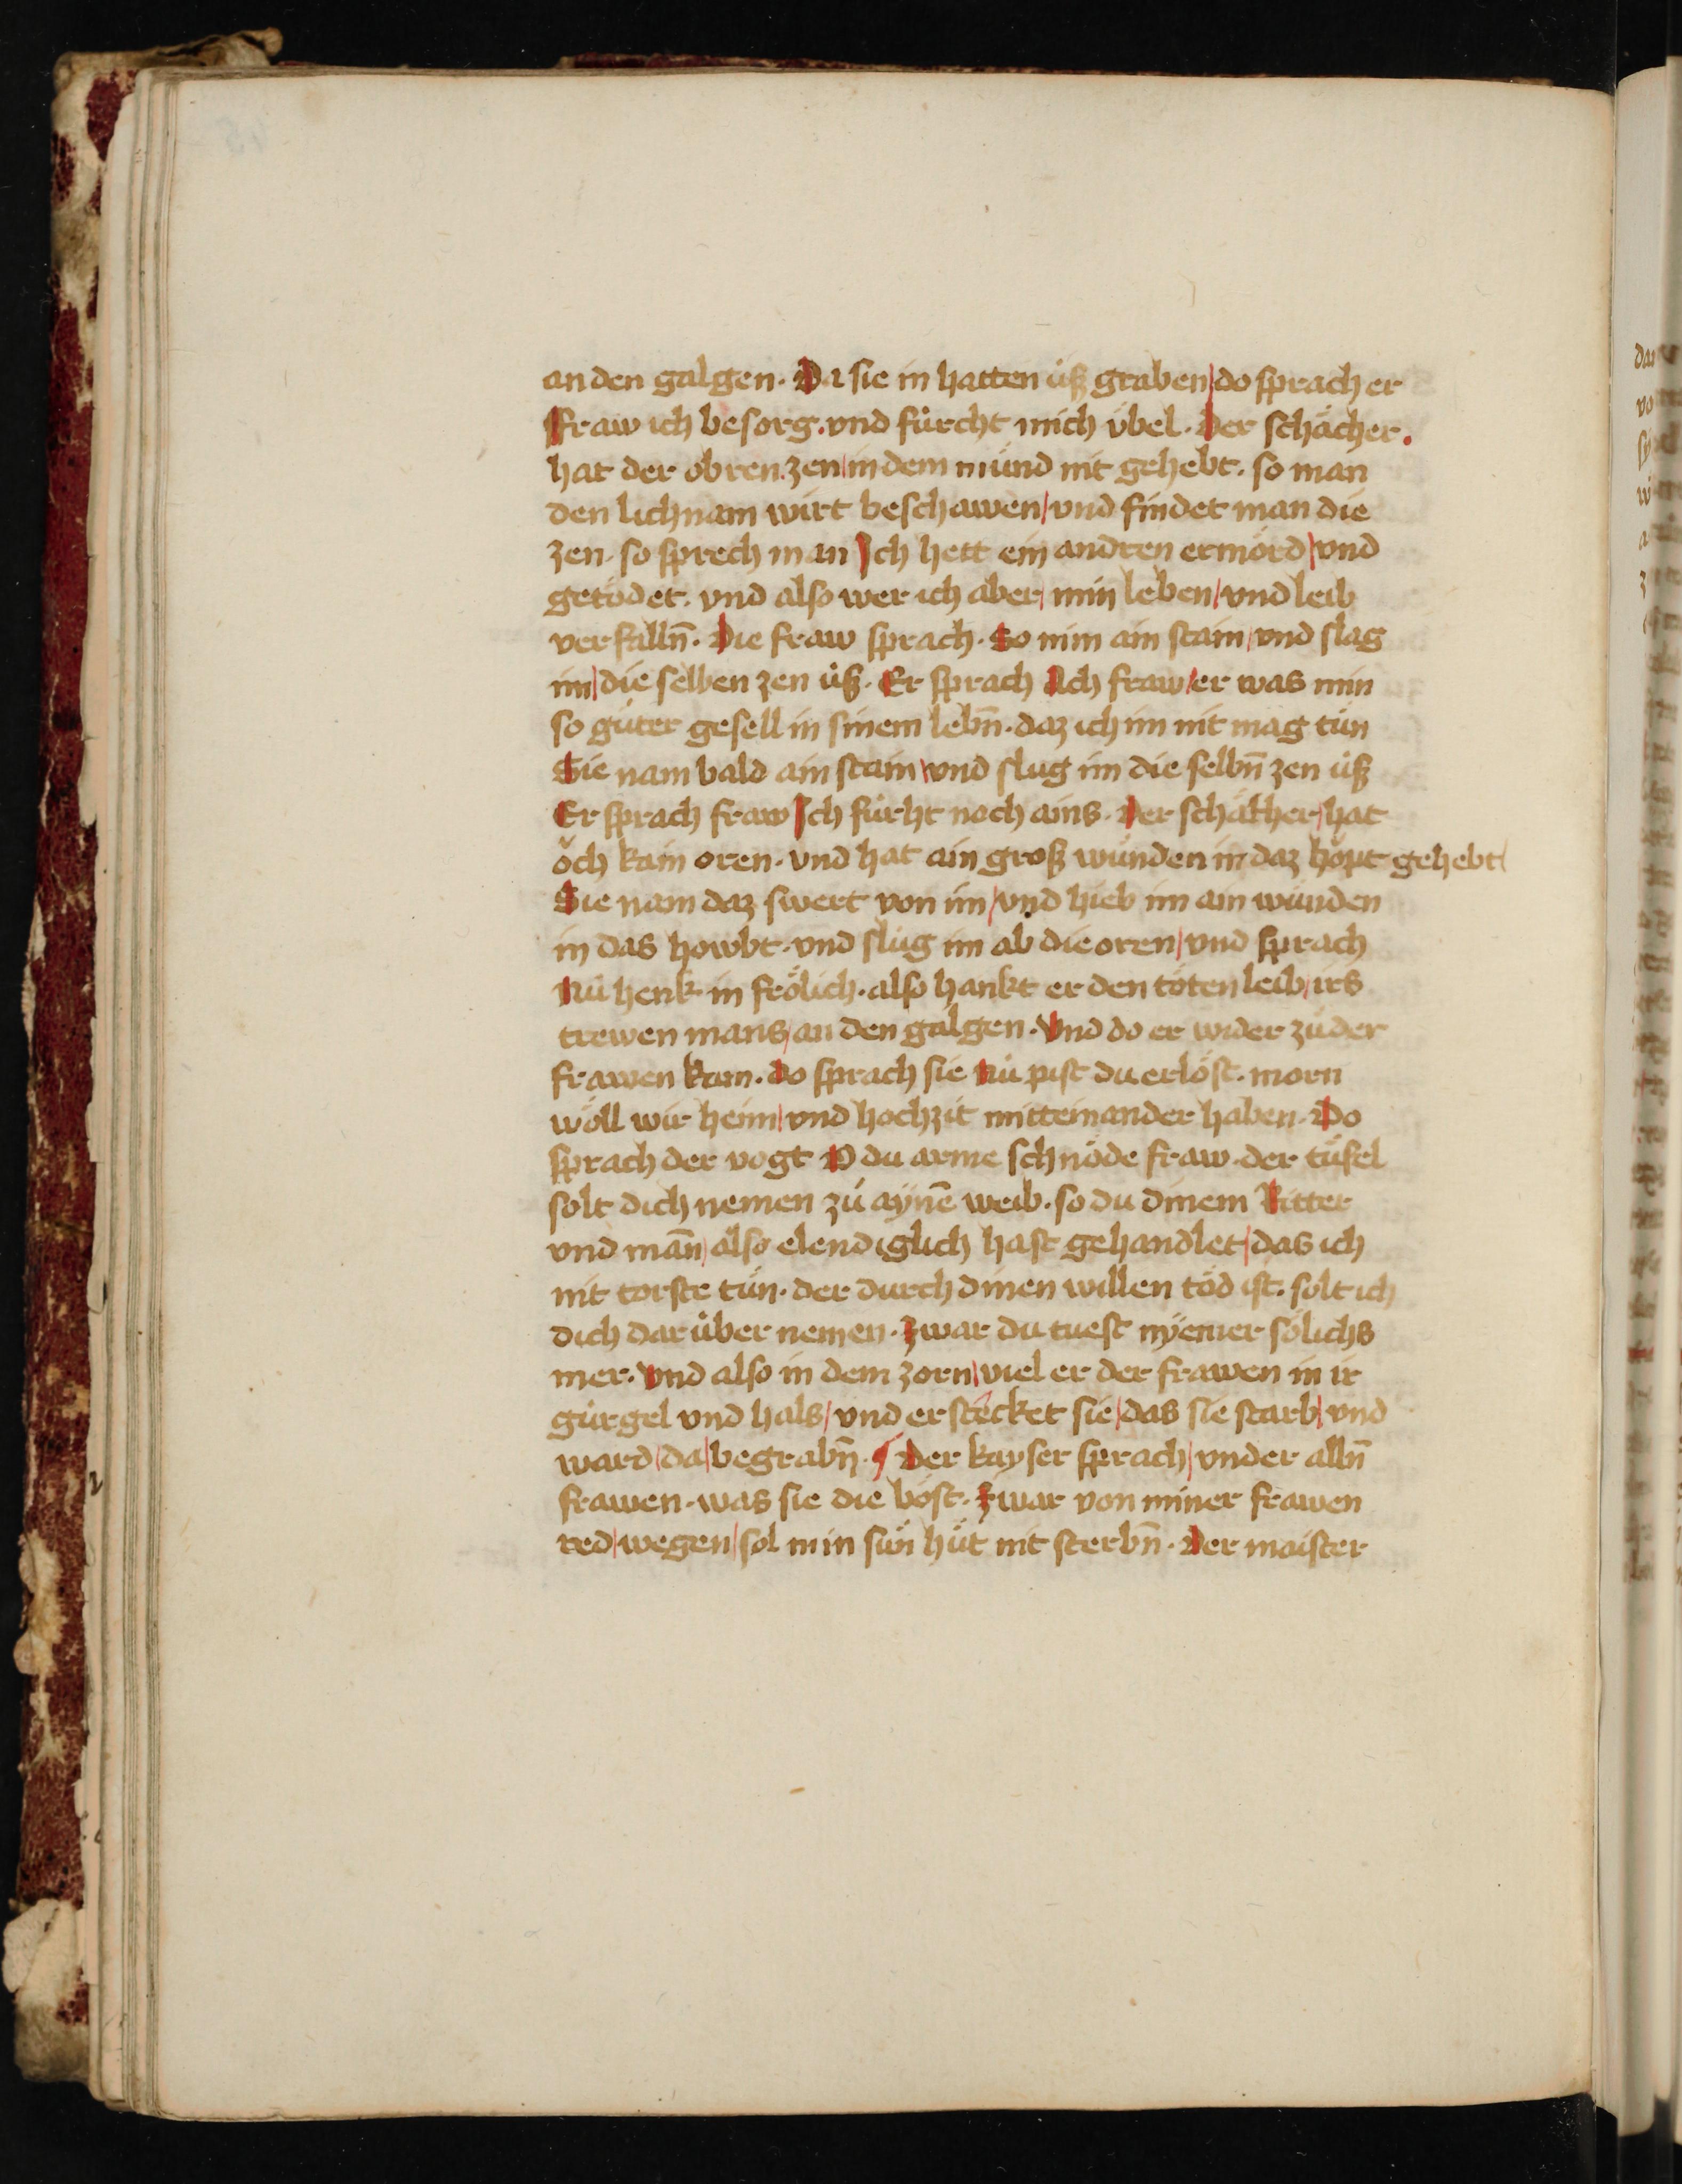 an den galgen. Da sie in hatten üß graben / do sprach er
Fraw ich besorg. vnd fürcht mich vbel. Der schächer.
hat der obren. zen / in dem mund nit gehebt. so man
den lichnam wirt beschawen / vnd findet man die
zen. so sprech man Ich hett ein andren ermörd / vnd
getödet. vnd also wer ich aber / min leben / vnd leib
verfallñ. Die fraw sprach. So nim ain stain / vnd slag
im / die selben zen uß. Er sprach Ach fraw / er was min
so güter gesell in sinem lebñ. daz ich im nit mag tün
Sie nam bald ain stain / vnd slug im die selbñ zen uß
Er sprach fraw Ich fürht noch ains. Der schächer / hat
öch kain oren. vnd hat ain groß wunden in daz höpt gehebt /
Sie nam daz swert von im / vnd hieb im ain wunden
in das howbt. vnd slüg im ab die oren / vnd sprach
Nu henk in frölich. also hankt er den töten leib / irs
trewen mans / an den galgen. Vnd do er wider zü der
frawen kam. do sprach sie Nu pist du erlöst. morn
wöll wir heim / vnd hochzit mitteinander haben. Do
sprach der vogt O du arme schnöde fraw. der tüfel
solt dich nemen zü aÿnē weib. so du dinem Ritter
vnd mañ / also elendiglich hast gehandlet / das ich
nit torste tün. der durch dinen willen töd ist. solt ich
dich darüber nemen. Zwar du tuest nÿemer sölichs
mer. Vnd also in dem zorn / viel er der frawen in ir
gurgel vnd hals / vnd erstecket sie / das sie starb / vnd
ward / da / begrabñ. ¶ Der kayser sprach / vnder allñ
frawen. was sie die böst. Zwar von miner frawen
red / wegen / sol min sün hüt nit sterbñ. Der maister